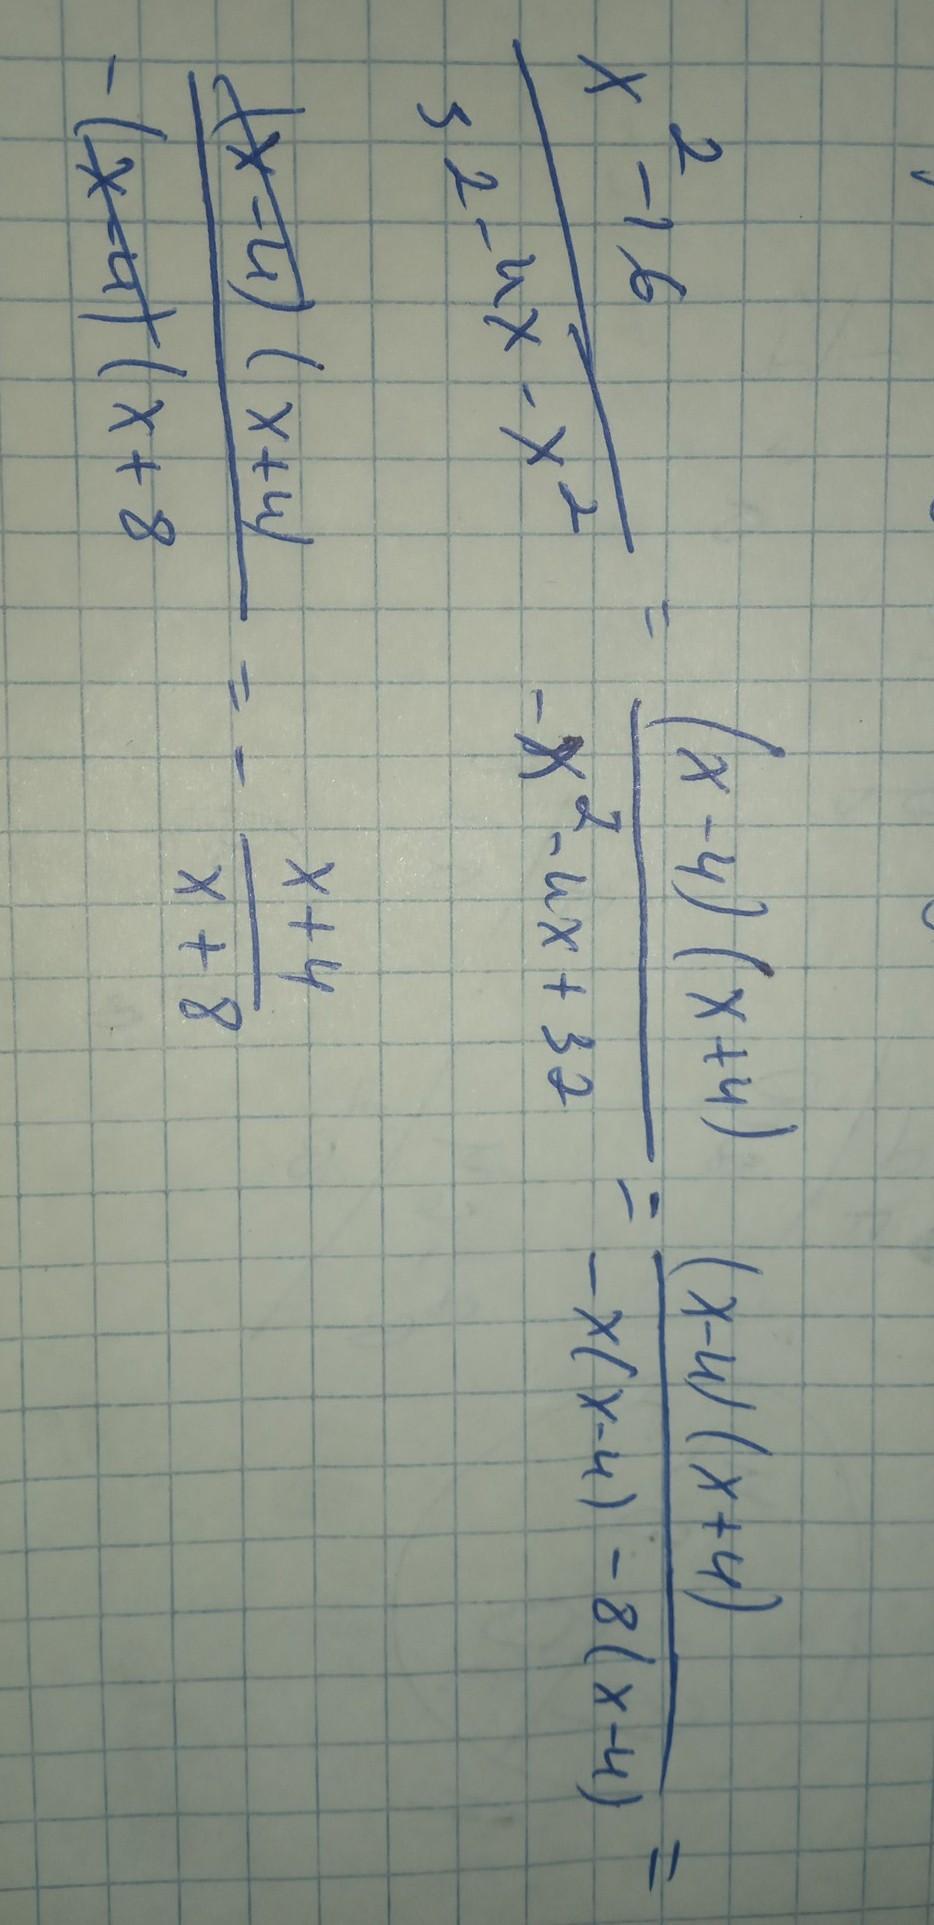 x² - 16 / 32 - 4x - x² = (x - 4)(x + 4) / -x² - 4x + 32 = (x - 4)(x + 4) / -x(x - 4) - 8(x - 4) =
(x - 4)(x + 4) / -(x - 4)(x + 8 = - x + 4 / x + 8